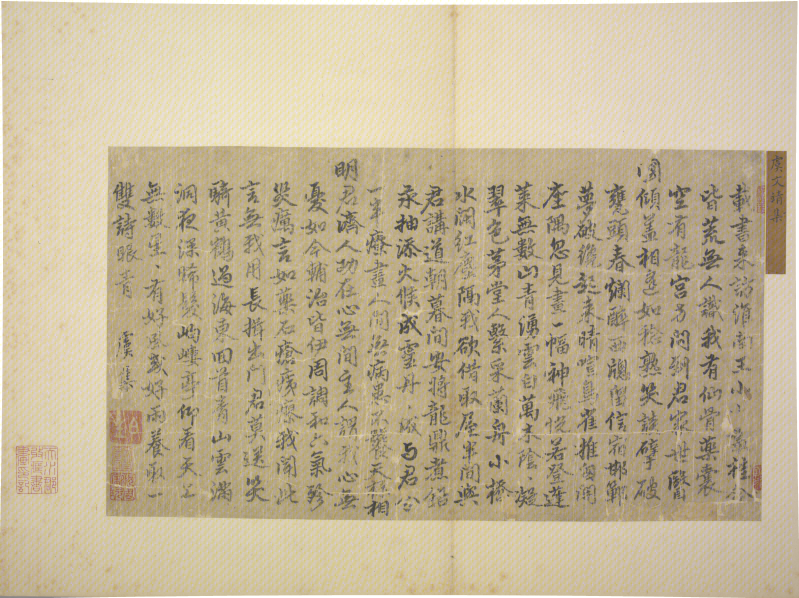 虞文靖集
載書來訪淮南王小山叢桂今
皆荒無人識我有仙骨藥囊
空有龍宮方問到君家世醫
國傾蓋相逢如稔熟笑談擘破
甕頭春爛醉西牕聊信宿邯鄲
夢破纔起來晴喧鳥雀推窗開
座隅忽見畫一幅神飛恍若登蓬
萊無數山青湧雲白萬木陰凝
翠色茅堂人繫采蘭舟小橋
水闊紅塵隔我欲借取屋半間與
君講道朝暮間安將龍鼎煮鉛
汞抽添火候成靈丹丹成與君分
一半療盡人間
病患
天
相
明君濟人功在心無間主人謂我心無
憂如今輔治皆伊周調和六氣
災癘言如藥石瘡痍瘳我聞此
言無我用長揖出門君莫送笑
騎黃鶴過海東回首青山雲滿
洞夜深晞髮岣嶁亭仰看天上
無數星星有好風或好雨養取一
雙詩眼青 虞集